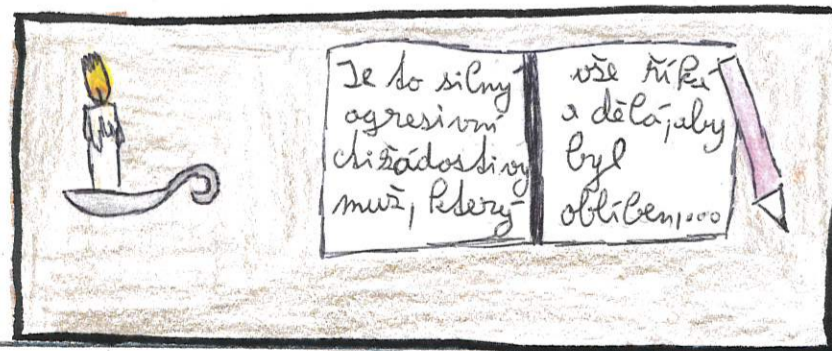 Je to silný
agresivní
ctižádostivý
muž, který
vše říká
a dělá, aby
byl
oblíben,...